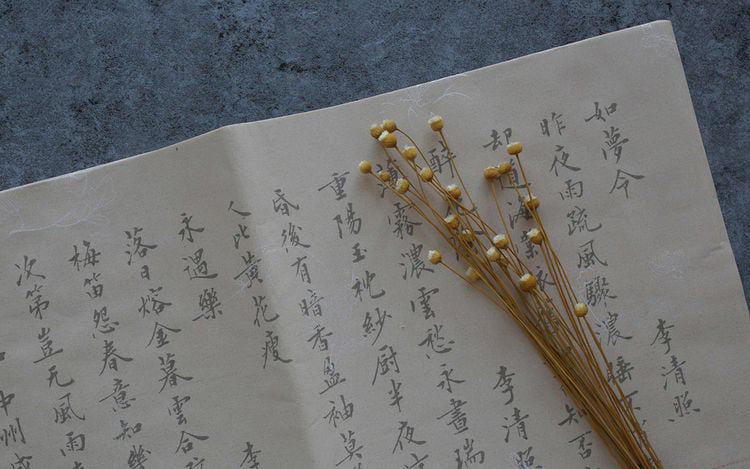 如夢令 李清照
昨夜雨疏風驟濃睡不
却道海棠依 知否
醉 李清照
薄霧濃雲愁永晝瑞
重陽玉枕紗厨半夜
昏後有暗香盈袖莫
人比黃花瘦
永遇樂 李
落日熔金暮雲合
梅笛怨春意知幾
次第豈无風雨
中州盛